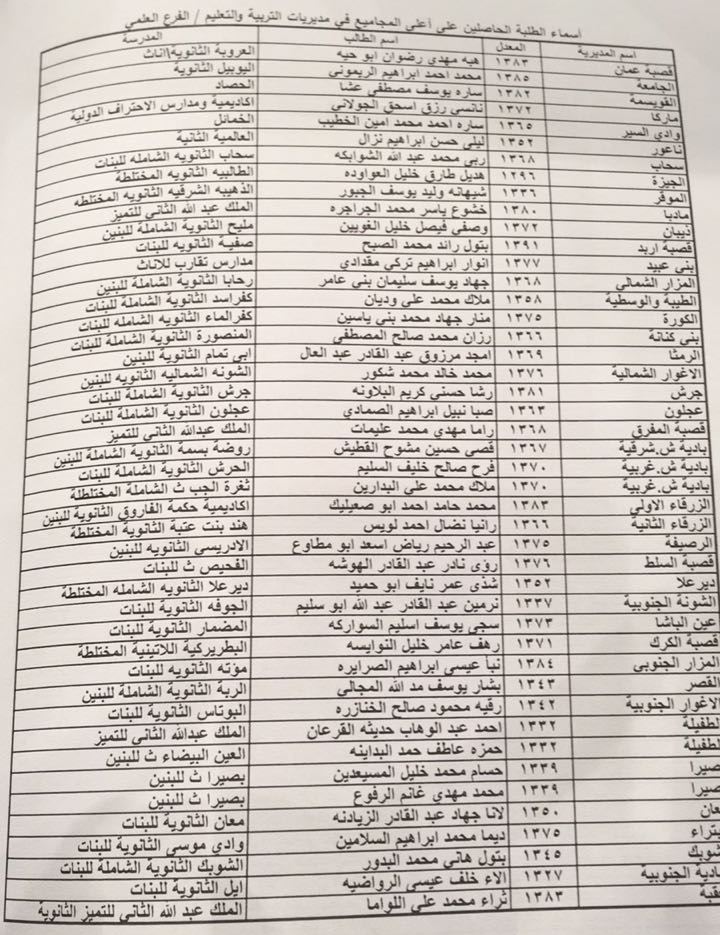 أسماء الطلبة الحاصلين على أعلى المجاميع في مديريات التربية والتعليم / الفرع العلمي
اسم المديرية المعدل اسم الطالب المدرسة
قصبة عمان ١٣٨٣ هبه مهدي رضوان ابو حيه العروبة الثانوية\اناث
الجامعة ١٣٨٥ محمد احمد ابراهيم الريموني اليوبيل الثانوية
القويسمة ١٣٨٢ ساره يوسف مصطفى عشا الحصاد
ماركا ١٣٧٢ نانسي رزق اسحق الجولاني اكاديمية ومدارس الاحتراف الدولية
وادي السير ١٣٦٥ ساره احمد محمد امين الخطيب الخمائل
ناعور ١٣٥٢ ليلى حسن ابراهيم نزال العالمية الثانية
سحاب ١٣٦٨ ربى محمد عبد الله الشوابكه سحاب الثانويه الشامله للبنات
الجيزة ١٢٩٦ هديل طارق خليل العواوده الطالبيه الثانويه المختلطة
الموقر ١٣٣٦ شيهانه وليد يوسف الجبور الذهيبه الشرقيه الثانويه المختلطه
مادبا ١٣٨٠ خشوع ياسر محمد الجراجره الملك عبد الله الثاني للتميز
ذيبان ١٣٧٢ وصفي فيصل خليل الغويين مليح الثانوية الشاملة للبنين
قصبة اربد ١٣٩١ بتول رائد محمد الصبح صفية الثانويه للبنات
بني عبيد ١٣٧٧ انوار ابراهيم تركي مقدادي مدارس تقارب للاناث
المزار الشمالي ١٣٦٨ جهاد يوسف سليمان بني عامر رحابا الثانوية الشاملة للبنين
الطيبة والوسطية ١٣٥٨ ملاك محمد علي وديان كفراسد الثانوية الشاملة للبنات
الكورة ١٣٧٥ منار جهاد محمد بني ياسين كفرالماء الثانويه الشامله للبنات
بني كنانة ١٣٦٦ رزان محمد صالح المصطفى المنصورة الثانوية الشاملة للبنات
الرمثا ١٣٦٩ امجد مرزوق عبد القادر عبد العال ابي تمام الثانوية للبنين
الاغوار الشمالية ١٣٧٦ محمد خالد محمد شكور الشونه الشماليه الثانويه للبنين
جرش ١٣٨١ رشا حسني كريم البلاونه جرش الثانوية الشاملة للبنات
عجلون ١٣٦٣ صبا نبيل ابراهيم الصمادي عجلون الثانوية الشاملة للبنات
قصبة المفرق ١٣٦٨ راما مهدي محمد عليمات الملك عبدالله الثاني للتميز
بادية ش.شرقية ١٣٦٧ قصي حسين مشوح القطيش روضة بسمة الثانوية الشاملة للبنين
بادية ش.غربية ١٣٧٠ فرح صالح خليف السليم الحرش الثانوية الشاملة للبنات
بادية ش.غربية ١٣٧٠ ملاك محمد علي البدارين ثغرة الجب ث الشاملة المختلطة
الزرقاء الاولى ١٣٨٣ محمد حامد احمد ابو صعيليك اكاديمية حكمة الفاروق الثانوية للبنين
الزرقاء الثانية ١٣٦٦ رانيا نضال احمد لويس هند بنت عتبة الثانوية المختلطة
الرصيفة ١٣٧٥ عبد الرحيم رياض اسعد ابو مطاوع الادريسي الثانوية للبنين
قصبة السلط ١٣٧٦ رؤى نادر عبد القادر الهوشه الفحيص ث للبنات
ديرعلا ١٣٥٢ شذى عمر نايف ابو حميد ديرعلا الثانويه الشامله المختلطة
الشونة الجنوبية ١٣٣٧ نرمين عبد القادر عبد الله ابو سليم الجوفه الثانوية للبنات
عين الباشا ١٣٧٣ سجى يوسف اسليم السواركه المضمار الثانوية للبنات
قصبة الكرك ١٣٧١ رهف عامر خليل النوايسه البطريركية اللاتينية المختلطة
المزار الجنوبي ١٣٨٤ نبأ عيسى ابراهيم الصرايره مؤته الثانويه للبنات
القصر ١٣٤٣ بشار يوسف مد الله المجالي الربة الثانوية الشاملة للبنين
الاغوار الجنوبية ١٣٤٢ رقيه محمود صالح الخنازره البوتاس الثانوية للبنات
لطفيلة ١٣٣٢ احمد عبد الوهاب حديثه القرعان الملك عبدالله الثاني للتميز
لطفيلة ١٣٣٢ حمزه عاطف حمد البداينه العين البيضاء ث للبنين
صيرا ١٣٣٩ حسام محمد خليل المسيعدين بصيرا ث للبنين
صيرا ١٣٣٩ محمد مهدي غانم الرفوع بصيرا ث للبنين
عان ١٣٥٠ لانا جهاد عبد القادر الزيادنه معان الثانوية للبنات
بتراء ١٣٧٥ ديما محمد ابراهيم السلامين وادي موسى الثانوية للبنات
شوبك ١٣٤٥ بتول هاني محمد البدور الشوبك الثانوية الشاملة للبنات
بادية الجنوبية ١٣٢٧ الاء خلف عيسى الرواضيه ايل الثانوية للبنات
عقبة ١٣٨٣ ثراء محمد علي اللواما الملك عبد الله الثاني للتميز الثانوية